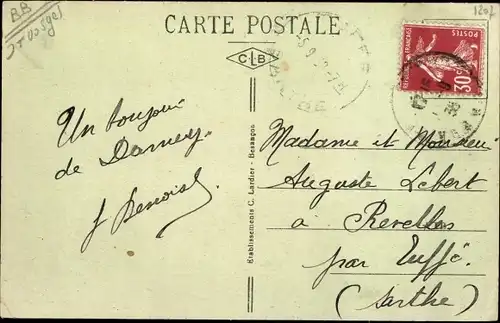 BB
Vosges
1207
CARTE POSTALE
CLB
REPUBLIQUE FRANÇAISE
POSTES
30c
Un bonjour
de Darney.
J Benoist
Etablissements C. Lardier - Besançon
Madame et Monsieur
Auguste Lebert
à Revellon
par Tuffé.
(Sarthe)